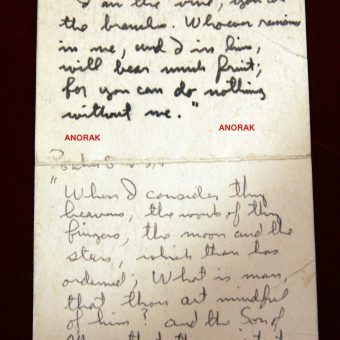 I am the vine, you are
the branches. Whoever remains
in me, and I in him,
will bear much fruit;
for you can do nothing
without me."
ANORAK
ANORAK
Psalm 8
"When I consider thy
heavens, the work of thy
fingers, the moon and the
stars, which thou has
ordained; What is man,
that thou art mindful
of him? and the Son of